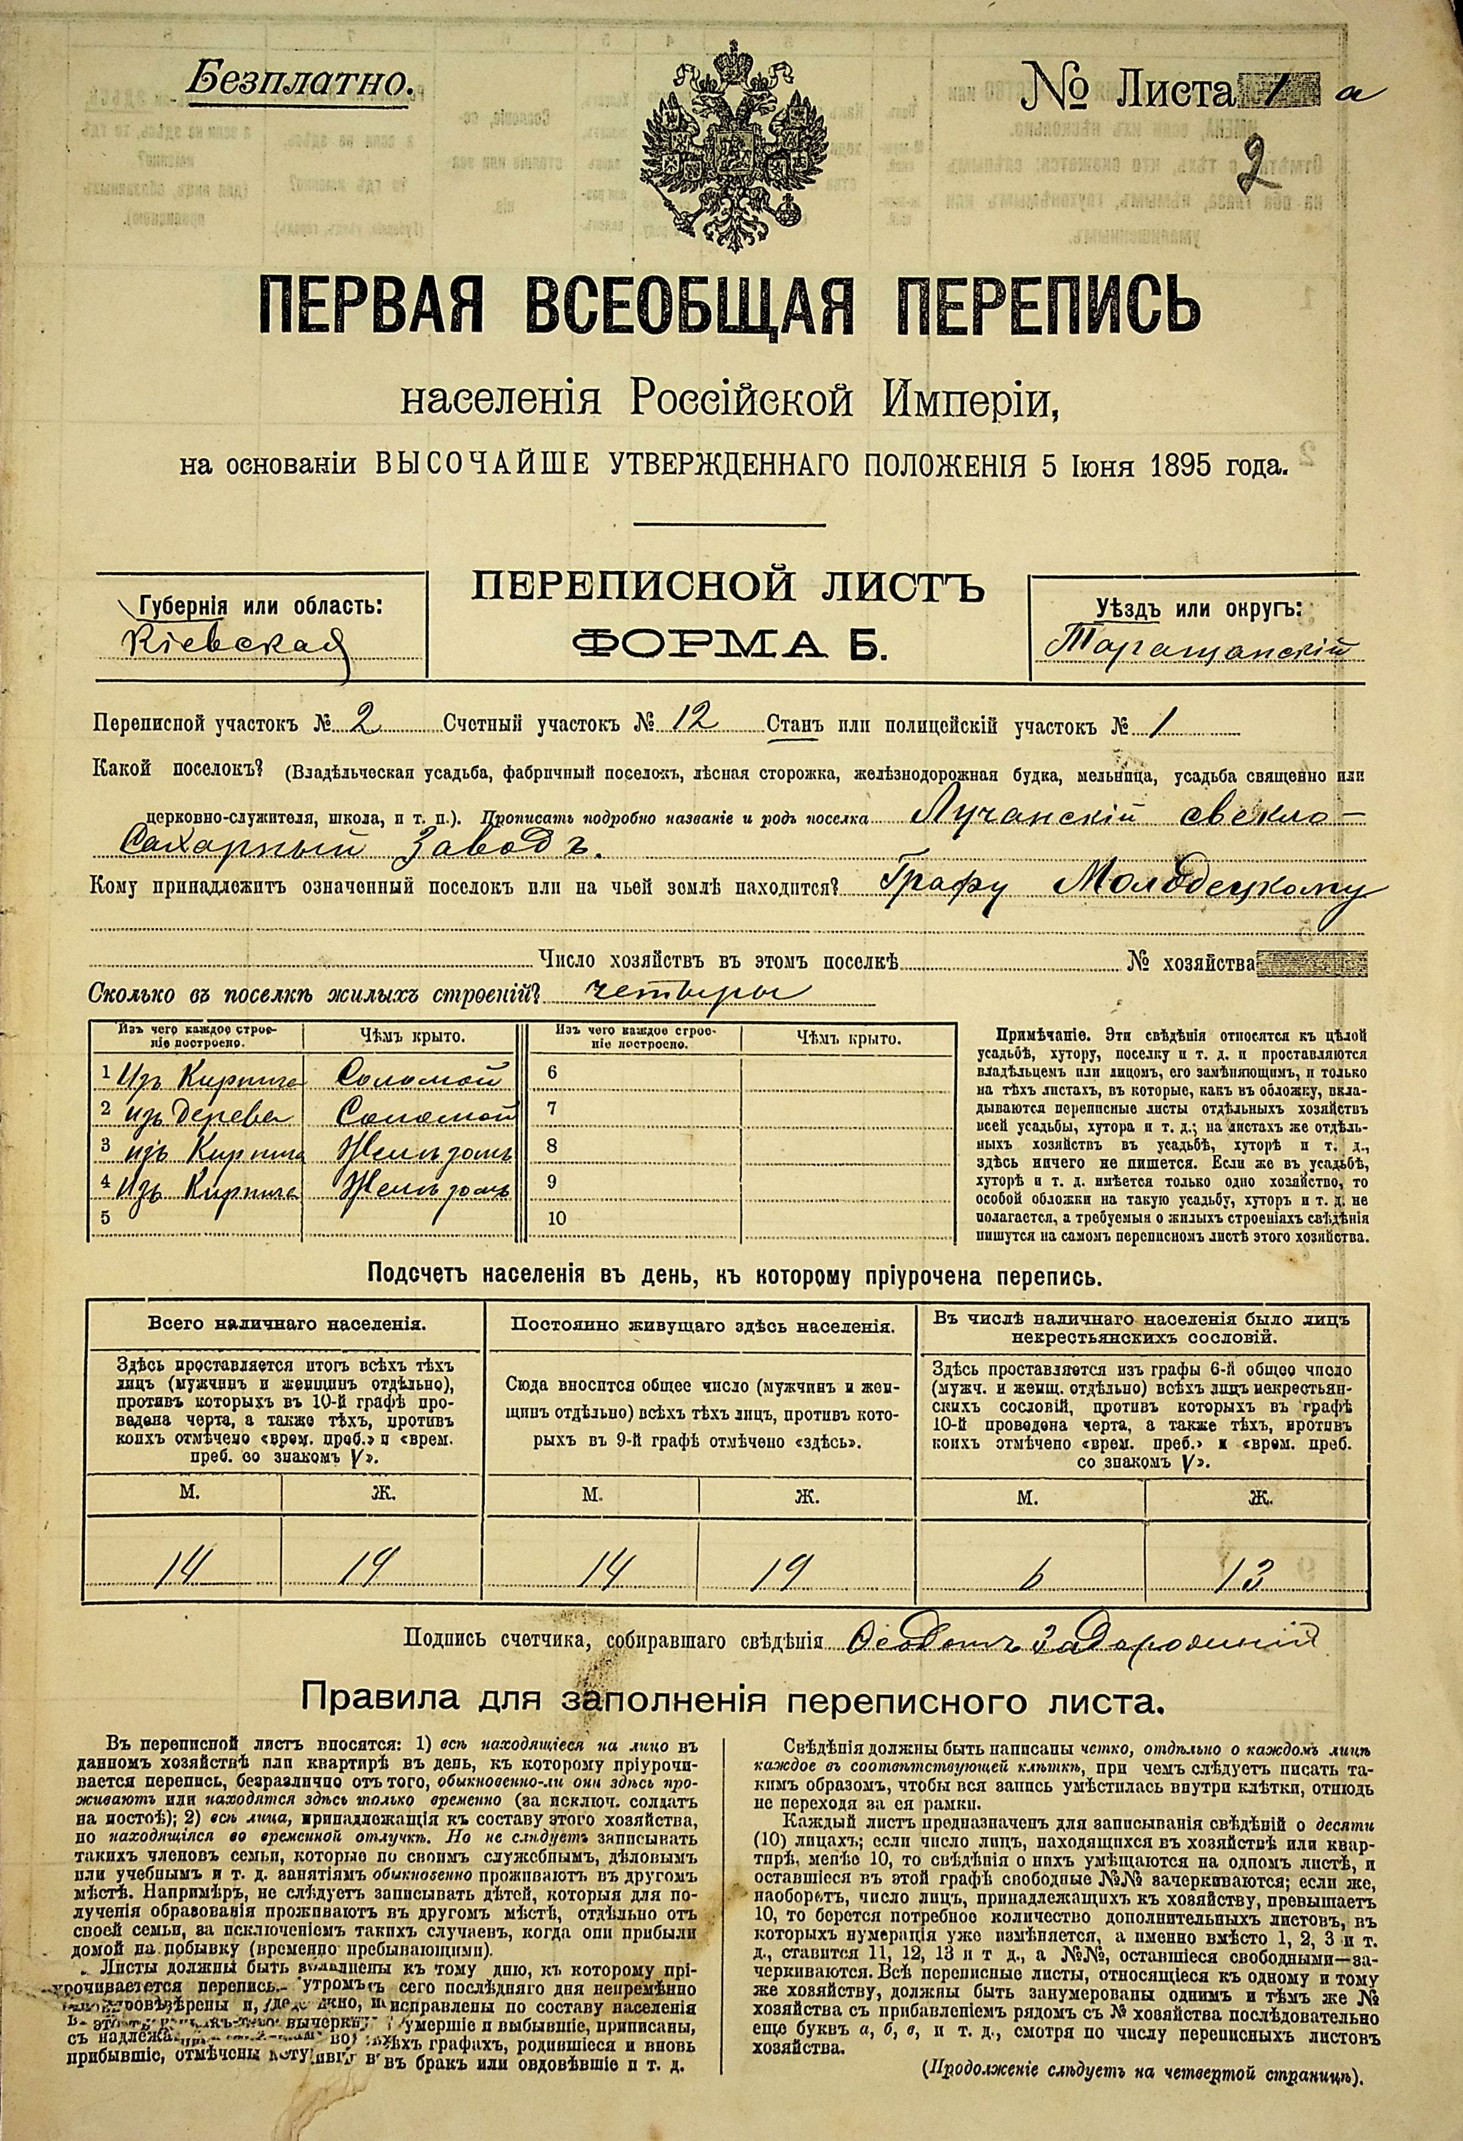 Безплатно.
№ Листа 1 а
2
ПЕРВАЯ ВСЕОБЩАЯ ПЕРЕПИСЬ
населенія Россійской Имперіи,
на основаніи ВЫСОЧАЙШЕ УТВЕРЖДЕННАГО ПОЛОЖЕНІЯ 5 Іюня 1895 года.
ПЕРЕПИСНОЙ ЛИСТЪ
ФОРМА Б.
Губернія или область:
Кіевская
Уѣздъ или округъ:
Таращанскій
Переписной участокъ № 2 Счетный участокъ № 12 Станъ или полицейскій участокъ № 1
Какой поселокъ? (Владѣльческая усадьба, фабричный поселокъ, лѣсная сторожка, желѣзнодорожная будка, мельница, усадьба священно или
церковно-служителя, школа, и т. п.). Прописать подробно названіе и родъ поселка Лучанскій свекло-
Сахарный Заводъ.
Кому принадлежитъ означенный поселокъ или на чьей землѣ находится? Графу Молодецкому
Число хозяйствъ въ этомъ поселкѣ № хозяйства
Сколько въ поселкѣ жилыхъ строеній? четыры
Изъ чего каждое строе-
ніе построено.
Чѣмъ крыто.
Изъ чего каждое строе-
ніе построено.
Чѣмъ крыто.
1 Изъ Кирпича Соломой 6
2 изъ Дерева Соломой 7
3 изъ Кирпича Желѣзомъ 8
4 Изъ Кирпича Желѣзомъ 9
5 10
Примѣчаніе. Эти свѣдѣнія относятся къ цѣлой
усадьбѣ, хутору, поселку и т. д. и проставляются
владѣльцемъ или лицомъ, его замѣняющимъ, и только
на тѣхъ листахъ, въ которые, какъ въ обложку, вкла-
дываются переписные листы отдѣльныхъ хозяйствъ
всей усадьбы, хутора и т. д.; на листахъ же отдѣль-
ныхъ хозяйствъ въ усадьбѣ, хуторѣ и т. д.,
здѣсь ничего не пишется. Если же въ усадьбѣ,
хуторѣ и т. д. имѣется только одно хозяйство, то
особой обложки на такую усадьбу, хуторъ и т. д. не
полагается, а требуемыя о жилыхъ строеніяхъ свѣдѣнія
пишутся на самомъ переписномъ листѣ этого хозяйства.
Подсчетъ населенія въ день, къ которому пріурочена перепись.
Всего наличнаго населенія.
Здѣсь проставляется итогъ всѣхъ тѣхъ
лицъ (мужчинъ и женщинъ отдѣльно),
противъ которыхъ въ 10-й графѣ про-
ведена черта, а также тѣхъ, противъ
коихъ отмѣчено «врем. преб.» и «врем.
преб. со знакомъ V».
М. Ж.
14 19
Постоянно живущаго здѣсь населенія.
Сюда вносится общее число (мужчинъ и жен-
щинъ отдѣльно) всѣхъ тѣхъ лицъ, противъ кото-
рыхъ въ 9-й графѣ отмѣчено «здѣсь».
М. Ж.
14 19
Въ числѣ наличнаго населенія было лицъ
некрестьянскихъ сословій.
Здѣсь проставляется изъ графы 6-й общее число
(мужч. и женщ. отдѣльно) всѣхъ лицъ некрестьян-
скихъ сословій, противъ которыхъ въ графѣ
10-й проведена черта, а также тѣхъ, противъ
коихъ отмѣчено «врем. преб.» и «врем. преб.
со знакомъ V».
М. Ж.
6 13
Подпись счетчика, собиравшаго свѣдѣнія Ѳеодотъ
Правила для заполненія переписного листа.
Въ переписной листъ вносятся: 1) всѣ находящіеся на лицо въ
данномъ хозяйствѣ или квартирѣ въ день, къ которому пріурочи-
вается перепись, безразлично отъ того, обыкновенно-ли они здѣсь про-
живаютъ или находятся здѣсь только временно (за исключ. солдатъ
на постоѣ); 2) всѣ лица, принадлежащія къ составу этого хозяйства,
но находящіяся во временной отлучкѣ. Но не слѣдуетъ записывать
такихъ членовъ семьи, которые по своимъ служебнымъ, дѣловымъ
или учебнымъ и т. д. занятіямъ обыкновенно проживаютъ въ другомъ
мѣстѣ. Напримѣръ, не слѣдуетъ записывать дѣтей, которыя для по-
лученія образованія проживаютъ въ другомъ мѣстѣ, отдѣльно отъ
своей семьи, за исключеніемъ такихъ случаевъ, когда они прибыли
домой на побывку (временно пребывающими).
Листы должны быть заполнены къ тому дню, къ которому прі-
урочивается перепись. Утромъ сего послѣдняго дня непремѣнно
провѣрены и, исправлены по составу населенія
вычеркн умершіе и выбывшіе, приписаны,
съ надлежа графахъ, родившіеся и вновь
прибывшіе, отмѣчены вступившіе въ бракъ или овдовѣвшіе и т. д.
Свѣдѣнія должны быть написаны четко, отдѣльно о каждомъ лицѣ
каждое въ соотвѣтствующей клѣткѣ, при чемъ слѣдуетъ писать та-
кимъ образомъ, чтобы вся запись умѣстилась внутри клѣтки, отнюдь
не переходя за ея рамки.
Каждый листъ предназначенъ для записыванія свѣдѣній о десяти
(10) лицахъ; если число лицъ, находящихся въ хозяйствѣ или квар-
тирѣ, менѣе 10, то свѣдѣнія о нихъ умѣщаются на одномъ листѣ, и
оставшіеся въ этой графѣ свободные №№ зачеркиваются; если же,
наоборотъ, число лицъ, принадлежащихъ къ хозяйству, превышаетъ
10, то берется потребное количество дополнительныхъ листовъ, въ
которыхъ нумерація уже измѣняется, а именно вмѣсто 1, 2, 3 и т.
д., ставится 11, 12, 13 и т д., а №№, оставшіеся свободными—за-
черкиваются. Всѣ переписные листы, относящіеся къ одному и тому
же хозяйству, должны быть занумерованы однимъ и тѣмъ же №
хозяйства съ прибавленіемъ рядомъ съ № хозяйства послѣдовательно
еще буквъ а, б, в, и т. д., смотря по числу переписныхъ листовъ
хозяйства.
(Продолженіе слѣдуетъ на четвертой страницѣ).